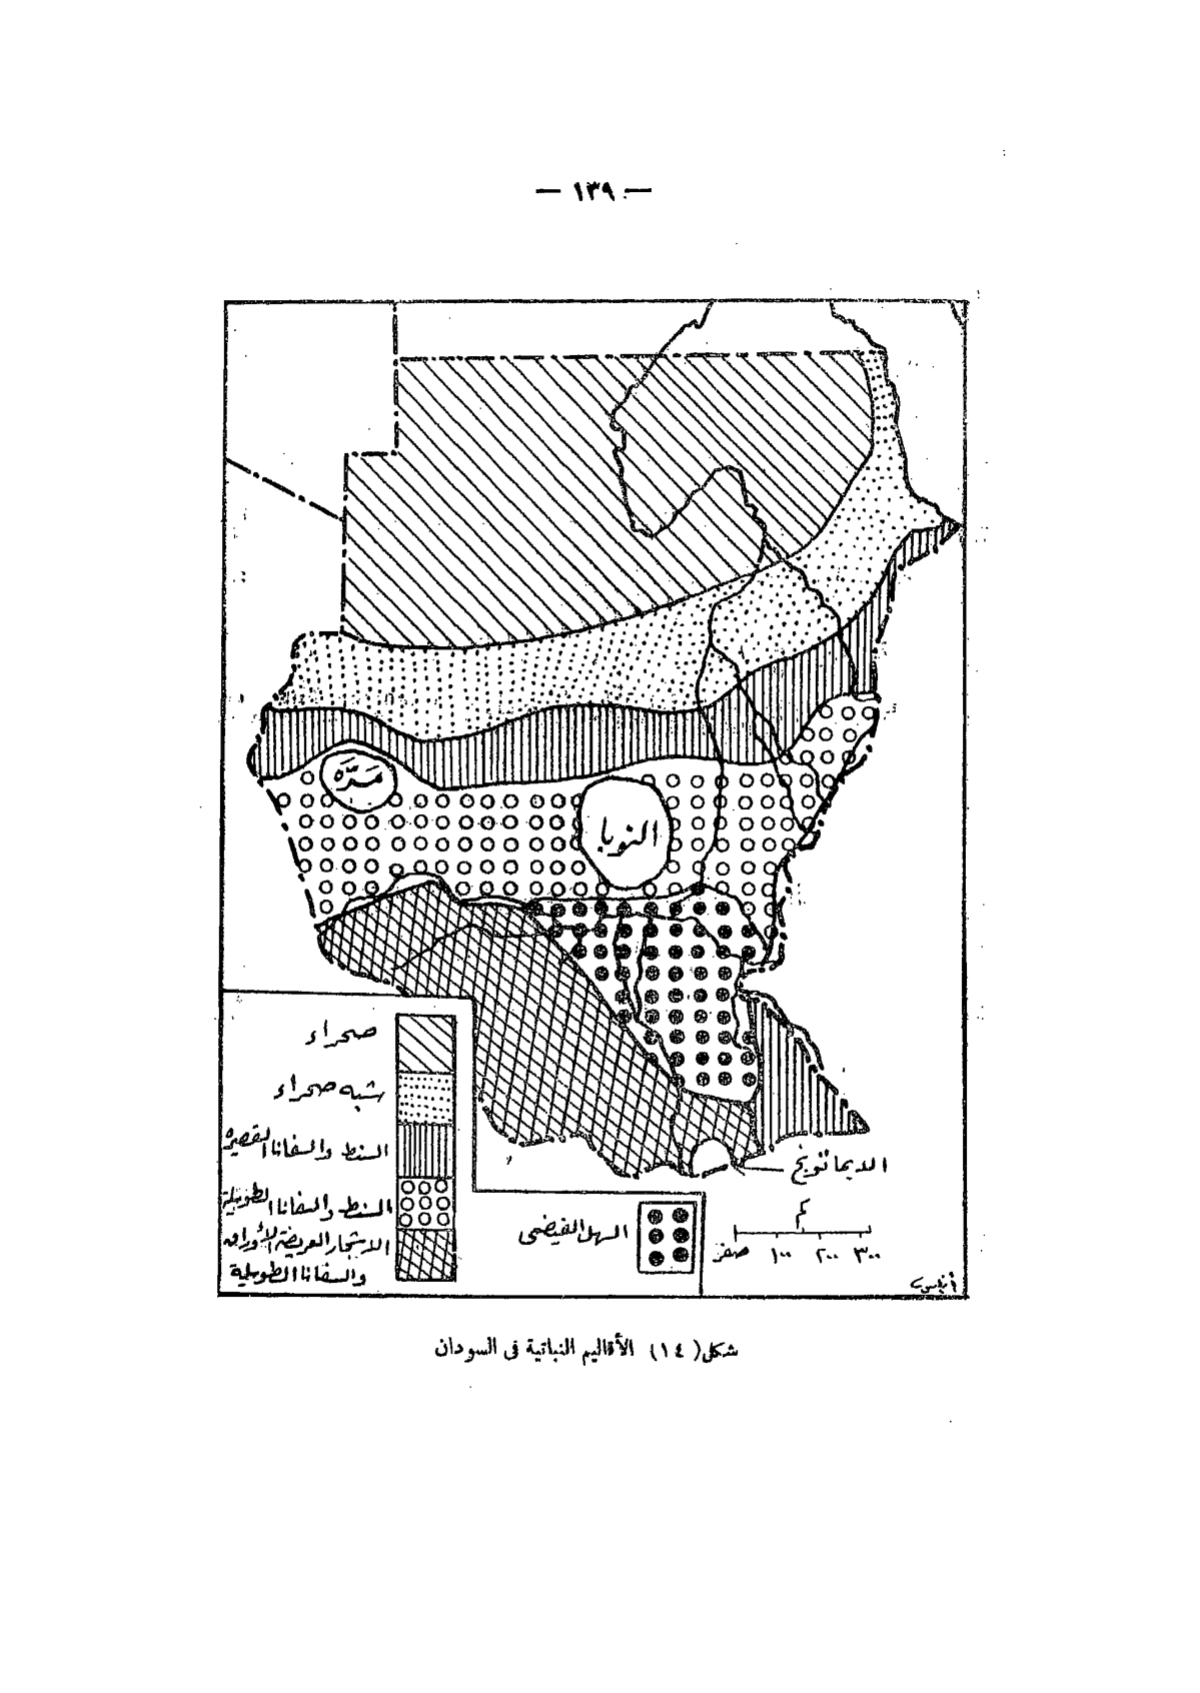 — ١٣٩ —
مَرَّه
النوبا
صحراء
شبه صحراء
السنط والسفانا القصيرة
السنط والسفانا الطويلة
الاشجار العريضة الأوراق
والسفانا الطويلة
السهل الفيضى
الايماتونج
كم
صفر ١٠٠ ٢٠٠ ٣٠٠
شكل (١٤) الأقاليم النباتية فى السودان